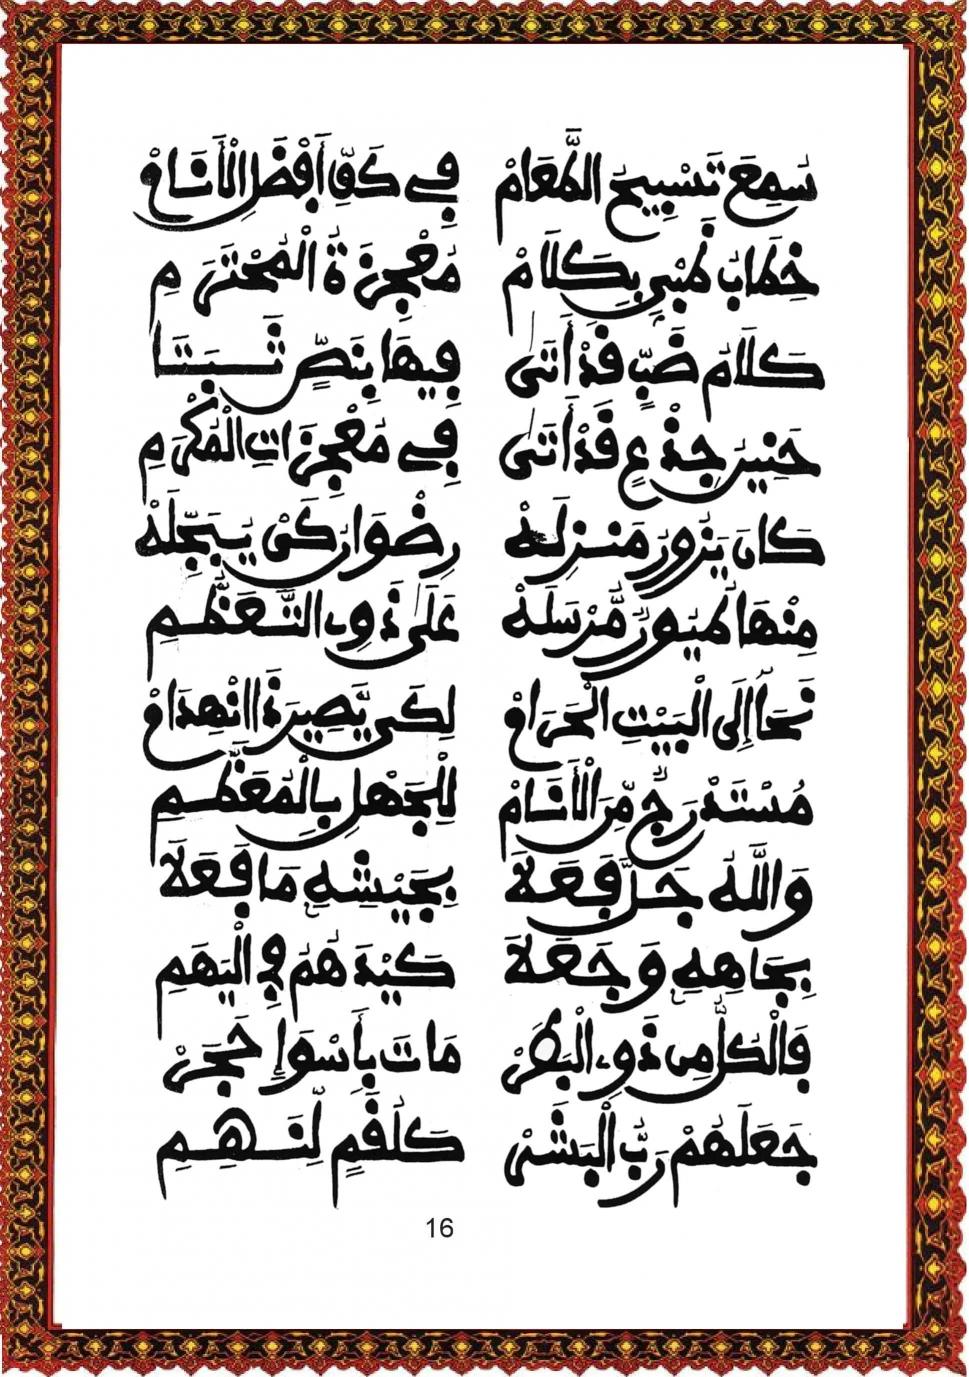 سُمِعَ تَسْبِيحُ الطَّعَامْ فِي كَفِّ أَفْضَلِ الْأَنَامْ
خِطَابُ ظَبْيٍ بِكَلَامْ مُعْجِزَةُ الْمُحْتَرَمِ
كَلَامُ ضَبٍّ قَدْ أَتَىٰ فِيهَا بِنَصٍّ ثَبَتَا
حَنِينُ جِذْعٍ قَدْ أَتَىٰ فِي مُعْجِزَاتِ الْمُكْرَمِ
كَانَ يَزُورُ مَنْزِلَهْ رِضْوَانُ كَيْ يُبَجِّلَهْ
مِنْهَا طُيُورٌ مُّرْسَلَهْ عَلَىٰ ذَوِي التَّعَظُّمِ
نَحَا إِلَى الْبَيْتِ الْحَرَامْ لِكَيْ يُّصِيرَ ذَا انْهِدَامْ
مُسْتَدْرَجٌ مِّنَ الْأَنَامْ لِلْجَهْلِ بِالْمُعَظَّمِ
وَاللَّهُ جَلَّ فَعَلَا بِجَيْشِهِ مَا فَعَلَا
بِجَاهِهِ وَجَعَلَا كَيْدَهُمُ فِي الْيَهَمِ
فَالْكُلُّ مِن ذَوِي الْبَطَرْ مَاتَ بِأَسْوَإِ حَجَرْ
جَعَلَهُمْ رَبُّ الْبَشَرْ كَلُقَمٍ لِّنَهِمِ
16